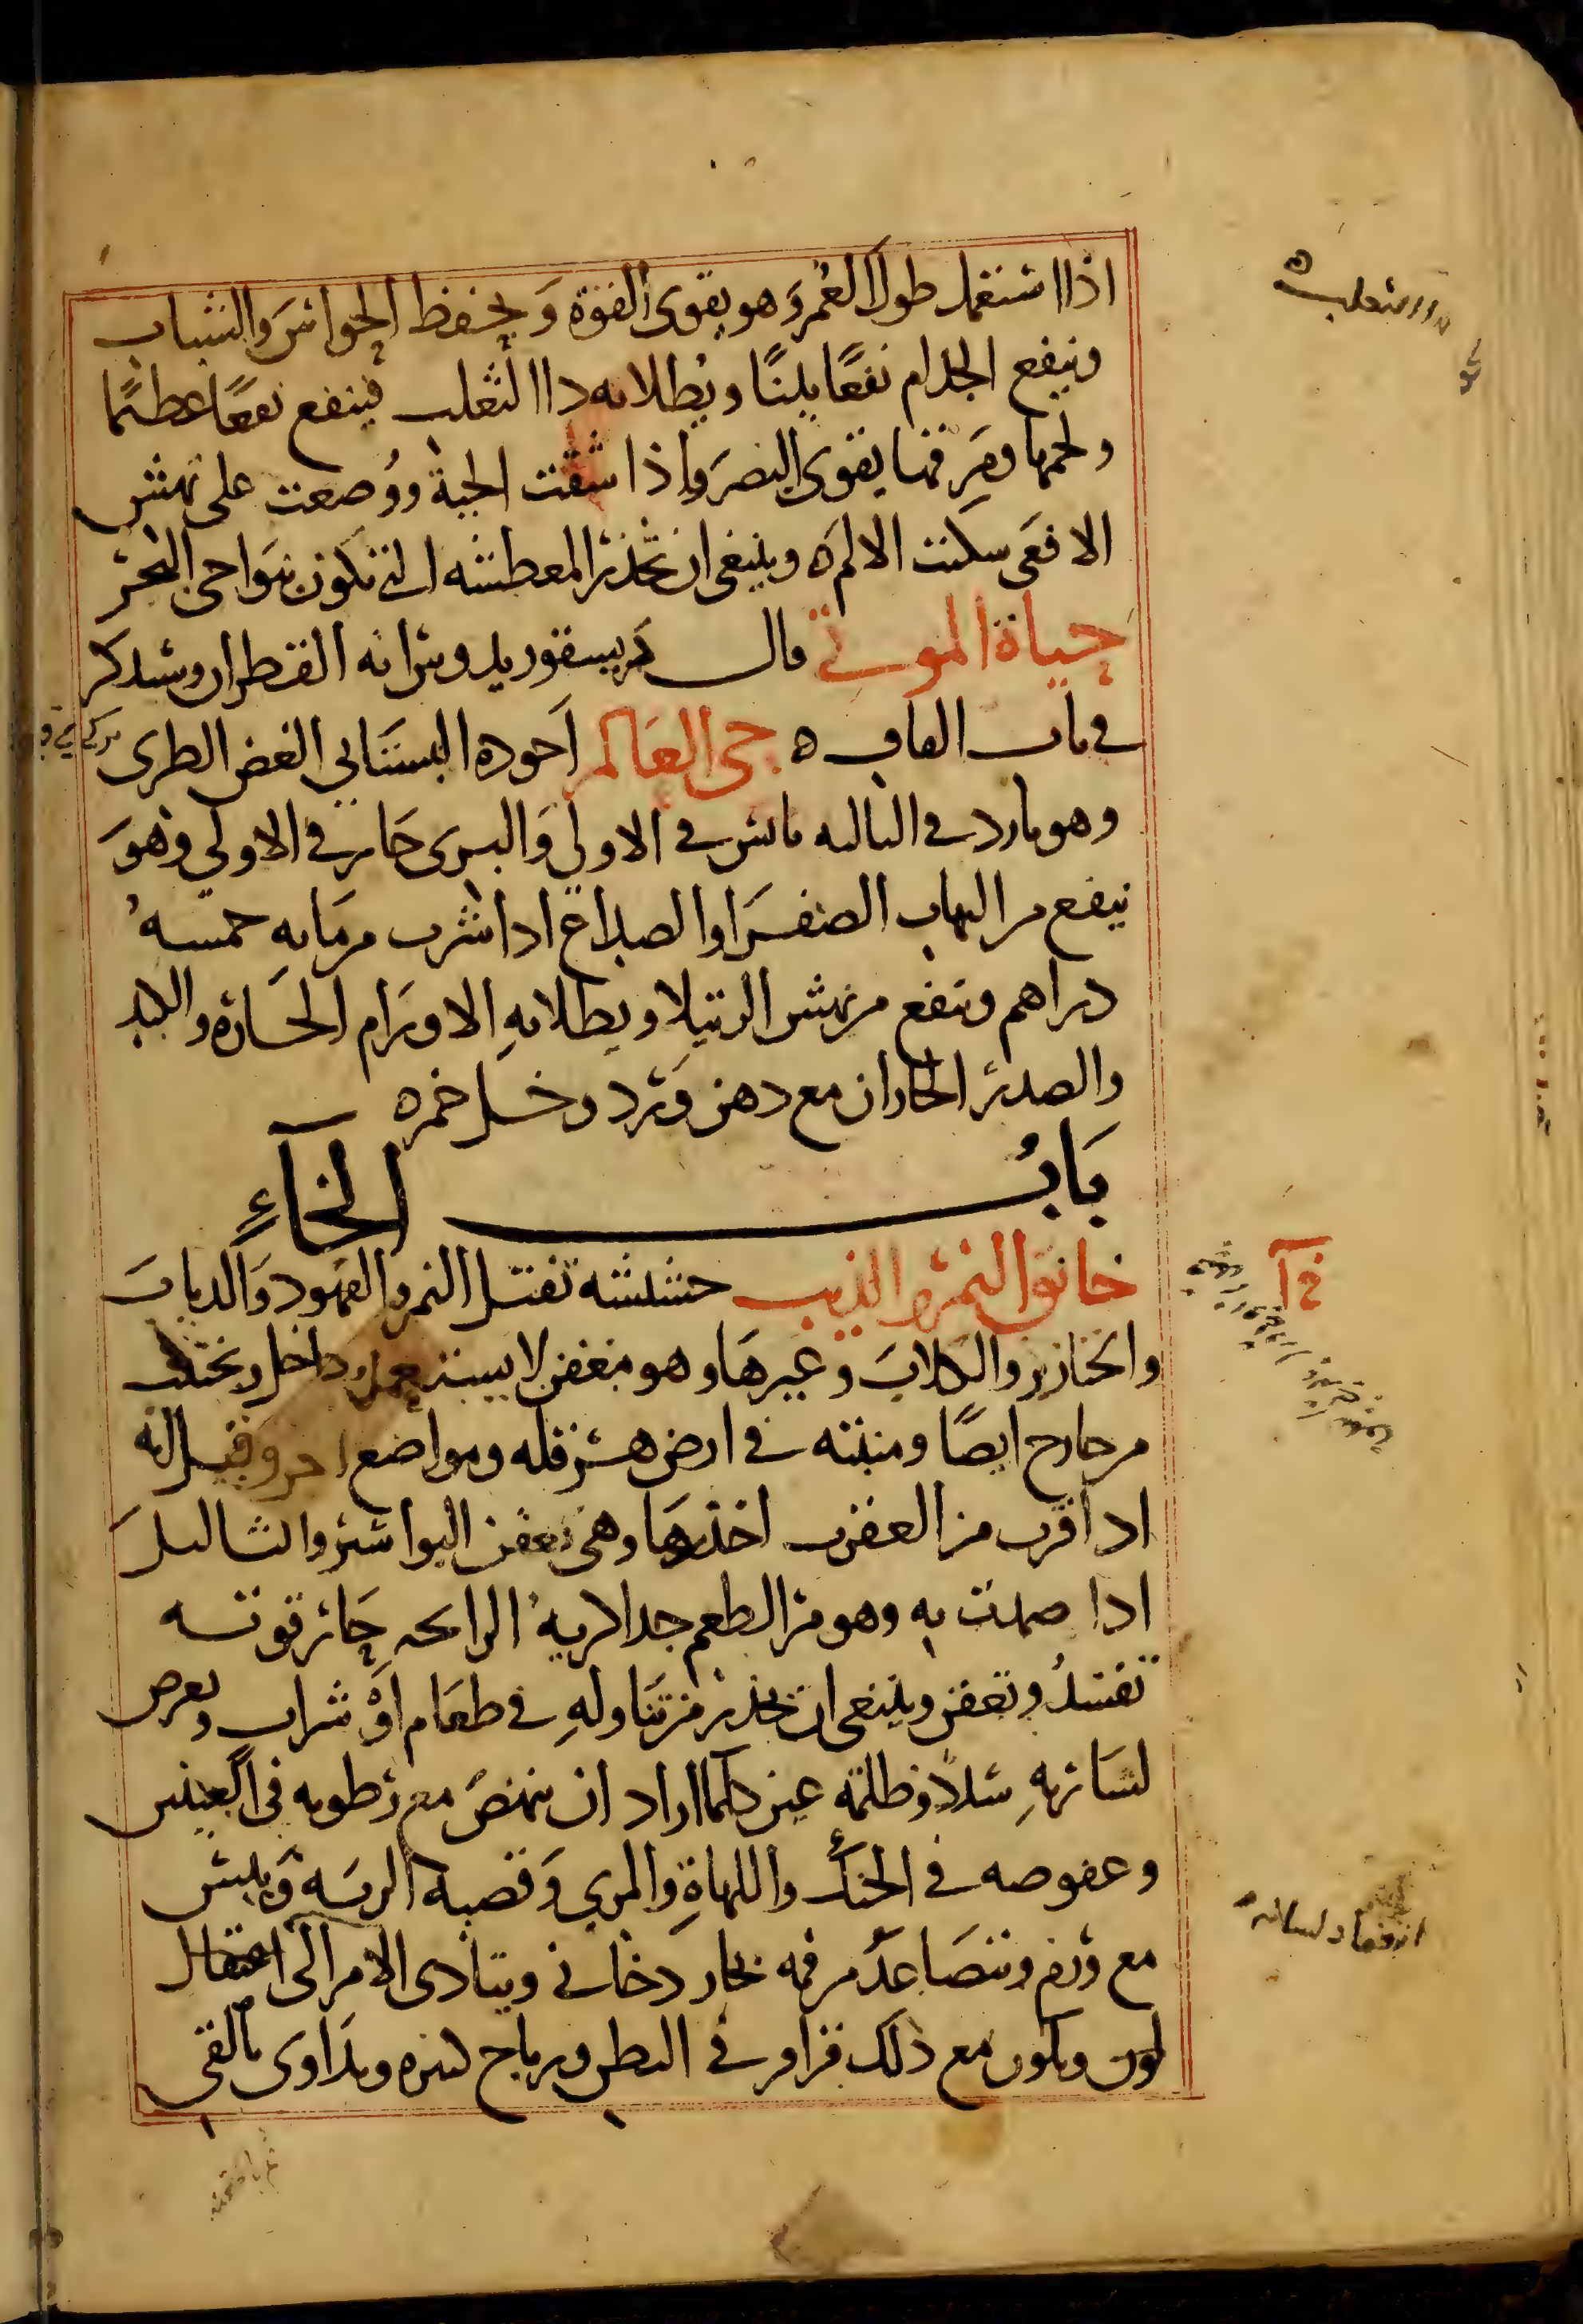 اذا استعمل طول العُمر وَهو يقوى القوة وَيحفظ الحواسَ والشباب
وينفع الجدام نفعًا بينًا ويُطلا به داا الثعلب فينفع نفعًا عظيمًا
ولحمها ومَرقها يقوى البصرَ واذا شقت الحية ووُضعت على نهش
الافعَى سكنت الالم ه وينبغى ان تحذر المعطشه التى تكون بنَواحى البحر
حياة الموتى قال ديسقوريدوس انه القطران وسنذكر
فى باب القاف ه حى العَالم اَجوده البستَانى الغض الطرى
وهو بارد فى الثالثه يابس فى الاولى وَالبرى حَار فى الاولى وَهوَ
ينفع من التهاب الصفرَا والصداع اذا شرب من مَايه خمسهُ
دراهم وينفع من نهش الرتيلا ويطلا بهِ الاورَام الحَاره والكبد
والصدر الحاران مع دهن وَرد وخل خمر ه
بَابُ الخآءِ
خانق النمر والذيب حشيشه تقتل النمر والفهود وَالديابَ
والخنازير والكلابَ وغيرهَا وهو معفن لا يستعمل من داخل ويجتنب
من خارج ايضًا ومنبته فى ارض هرقله ومواضع اخر وقيل انه
اذا قرب من العقرب اخدرهَا وهى تعفن البواسير والثاليلَ
اذا ضمدت به وهو مر الطعم جدا كريهُ الرايحه حَار قوته
تقتلُ وتعفن وينبغى ان يحذر من تنَاولهِ فى طعَام اَوْ شراب ويعرض
لشَاربهِ سَدَرًا وظلمة عين كلما اراد ان ينهضَ مع رَطوبه فى العينين
وعفوصه فى الحنك واللهاةِ والمرى وَقصبة الريَه وَيبس
مع وَرم ويتصَاعدُ من فمه بخار دخانى ويتأدى الامر الى اعتقال
لون ويكون مع ذلك قراقر فى البطن ورياح كثيره ويدَاوى بالقى